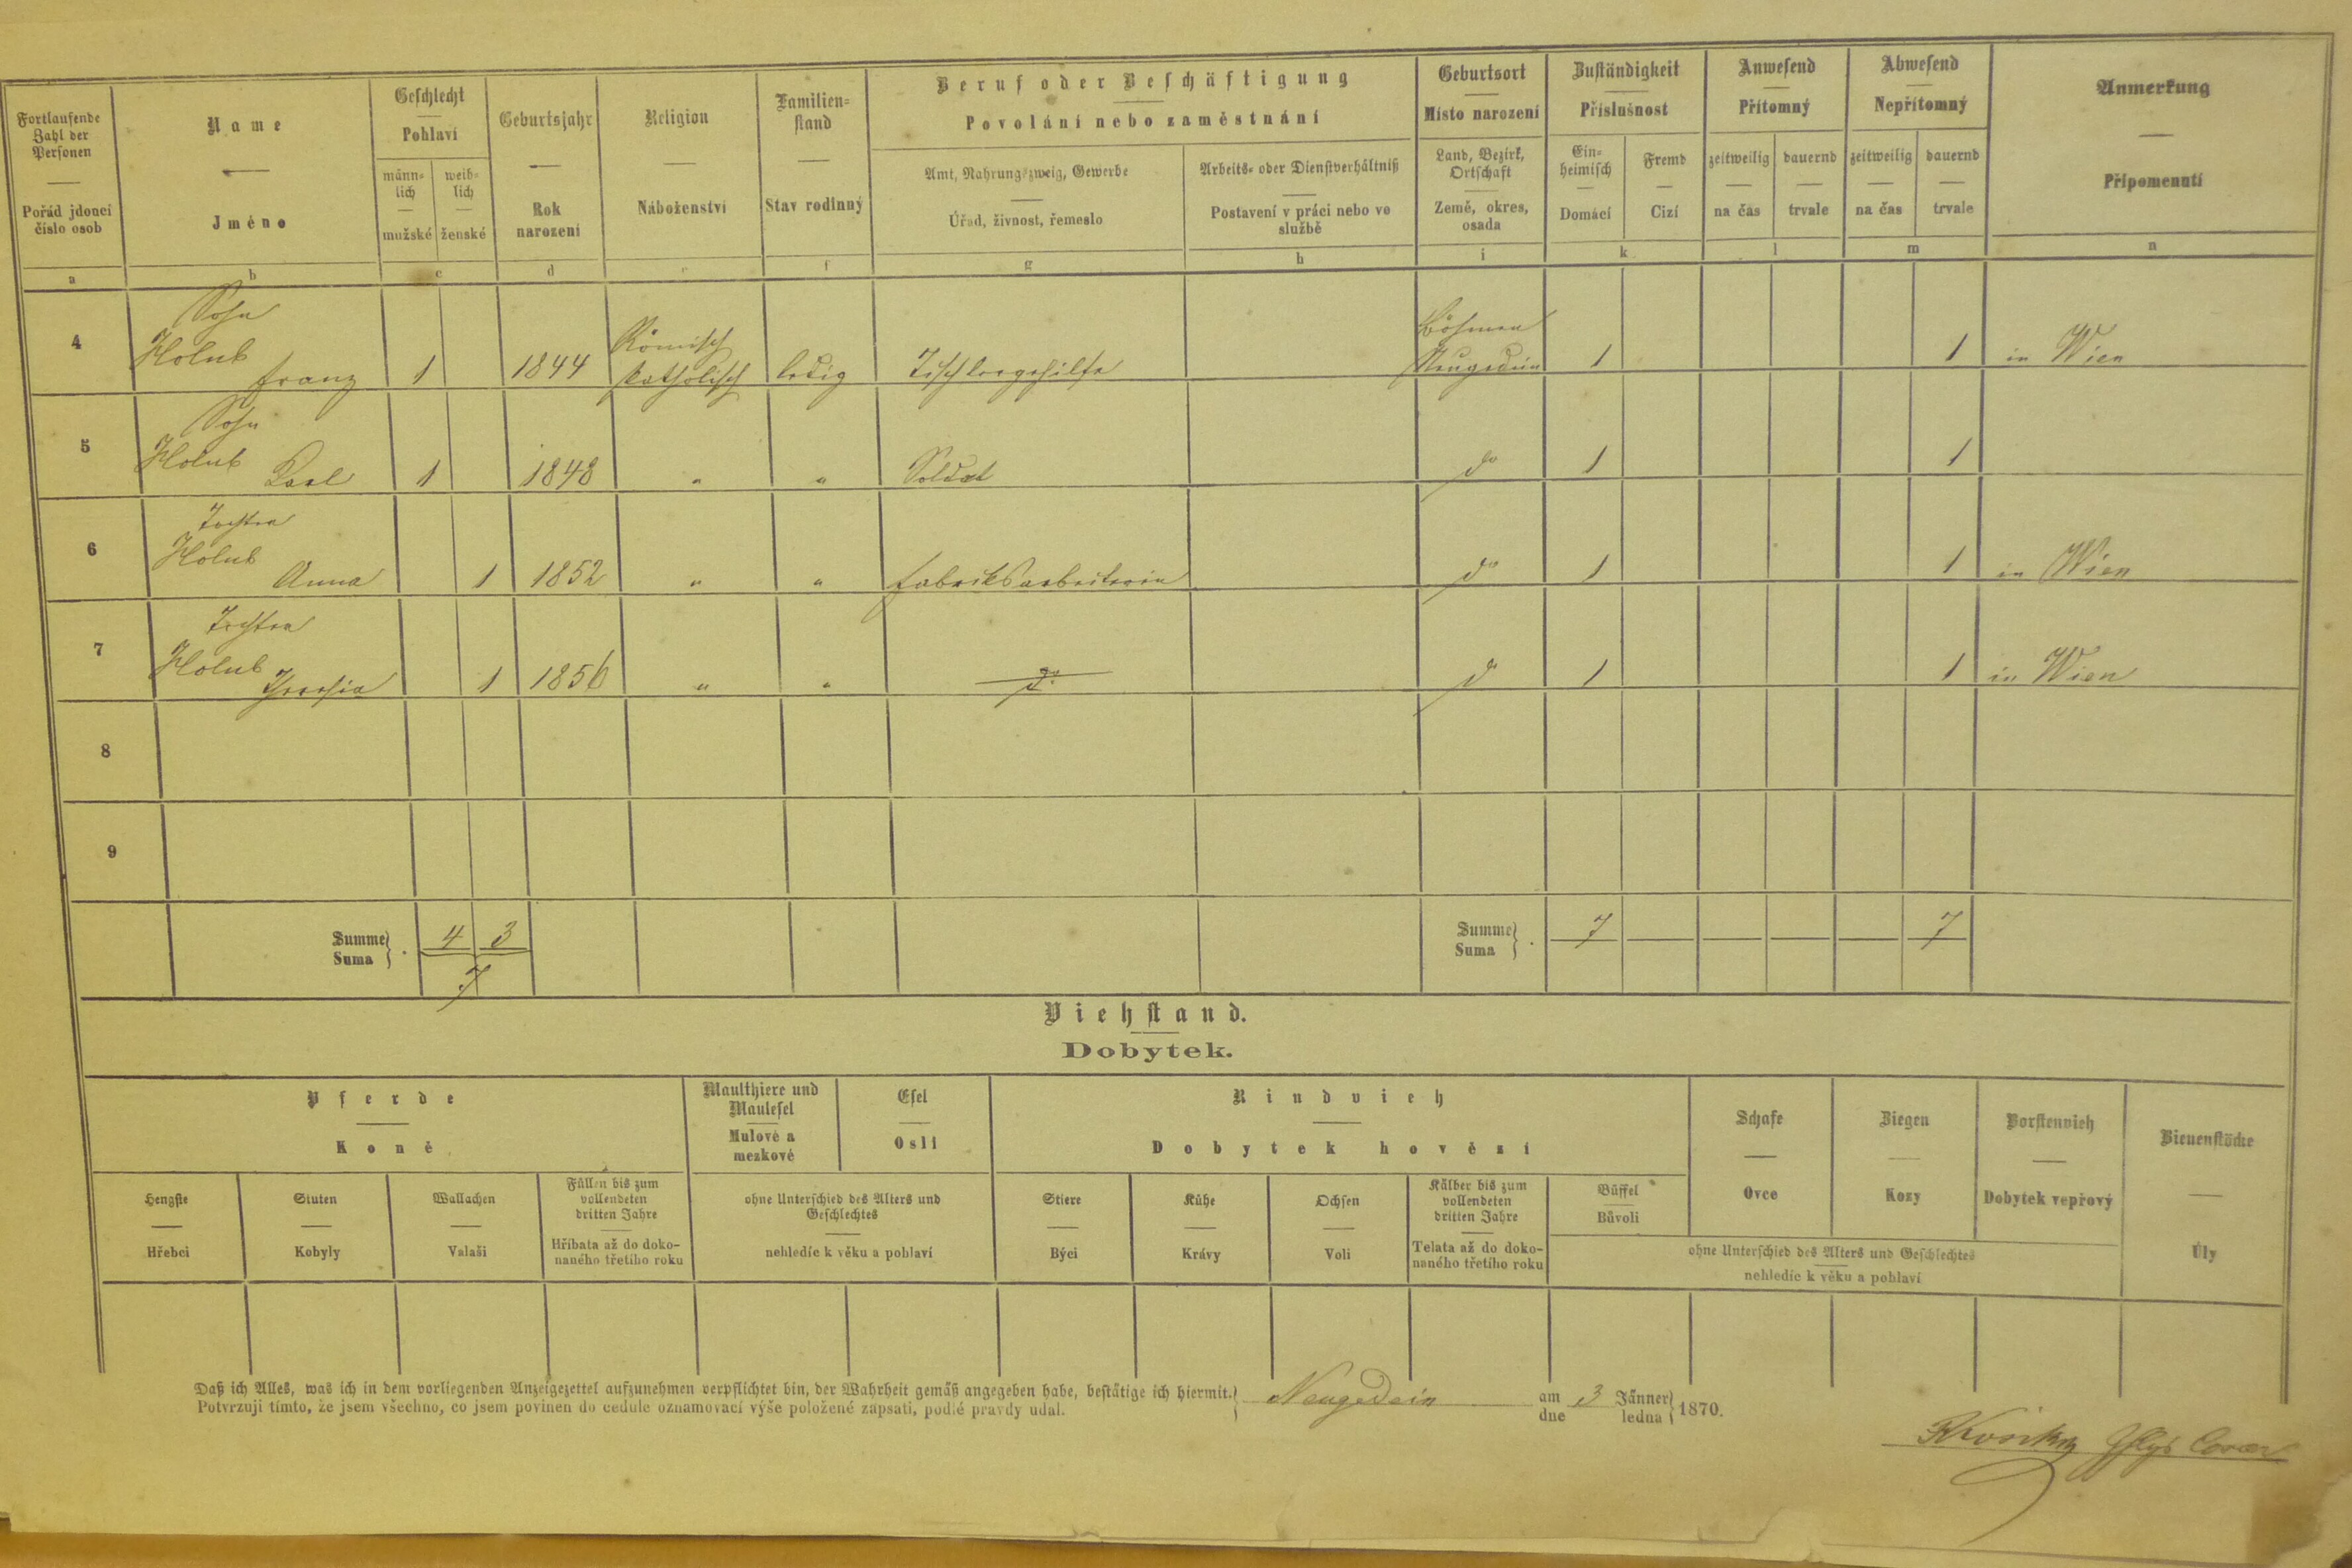 Fortlaufende Zahl der Personen
Pořád jdoucí číslo osob
Name
Jméno
Geschlecht
Pohlaví
männlich
mužské
weiblich
ženské
Geburtsjahr
Rok narození
Religion
Náboženství
Familienstand
Stav rodinný
Beruf oder Beschäftigung
Povolání nebo zaměstnání
Amt, Nahrungszweig, Gewerbe
Úřad, živnost, řemeslo
Arbeits- oder Dienstverhältniß
Postavení v práci nebo ve službě
Geburtsort
Místo narození
Land, Bezirk, Ortschaft
Země, okres, osada
Zuständigkeit
Příslušnost
Einheimisch
Domácí
Fremd
Cizí
Anwesend
Přítomný
zeitweilig
na čas
dauernd
trvale
Abwesend
Nepřítomný
zeitweilig
na čas
dauernd
trvale
Anmerkung
Připomenutí
a b c d e f g h i k l m n
4 Sohn Holub Franz 1 1844 Römisch katholisch ledig Tischlergehilfe Böhmen Neugedein 1 1 in Wien
5 Sohn Holub Karl 1 1848 " " Soldat do 1 1
6 Tochter Holub Anna 1 1852 " " Fabriksarbeiterin do 1 1 in Wien
7 Tochter Holub Theresia 1 1856 " " do do 1 1 in Wien
8
9
Summe
Suma
4 3
7
Summe
Suma
7 7
Viehstand.
Dobytek.
Pferde
Koně
Hengste
Hřebci
Stuten
Kobyly
Wallachen
Valaši
Füllen bis zum vollendeten dritten Jahre
Hříbata až do dokonaného třetího roku
Maulthiere und Maulesel
Mulové a mezkové
Esel
Osli
ohne Unterschied des Alters und Geschlechtes
nehledíc k věku a pohlaví
Rindvieh
Dobytek hovězí
Stiere
Býci
Kühe
Krávy
Ochsen
Voli
Kälber bis zum vollendeten dritten Jahre
Telata až do dokonaného třetího roku
Büffel
Bůvoli
Schafe
Ovce
Ziegen
Kozy
Borstenvieh
Dobytek vepřový
ohne Unterschied des Alters und Geschlechtes
nehledíc k věku a pohlaví
Bienenstöcke
Úly
Daß ich Alles, was ich in dem vorliegenden Anzeigezettel aufzunehmen verpflichtet bin, der Wahrheit gemäß angegeben habe, bestätige ich hiermit.
Potvrzuji tímto, že jsem všechno, co jsem povinen do cedule oznamovací výše položené zapsati, podlé pravdy udal.
Neugedein am dne 3 Jänner ledna 1870.